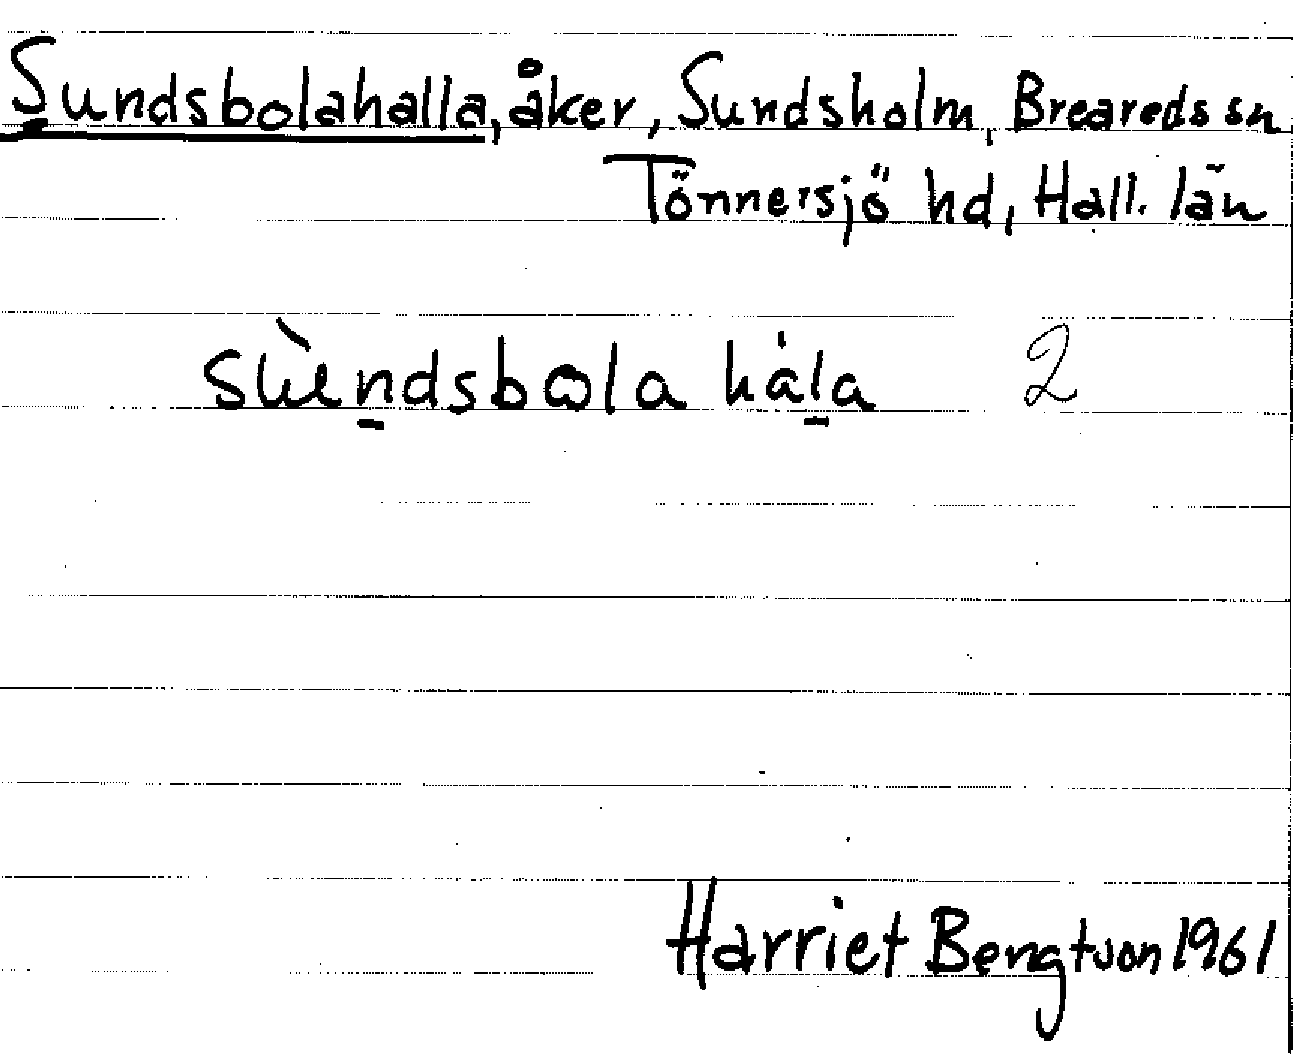 Sundsbolahalla, åker, Sundsholm, Breareds sn
Tönnersjö hd, Hall. län
hála 2
Harriet Bengtson 1961